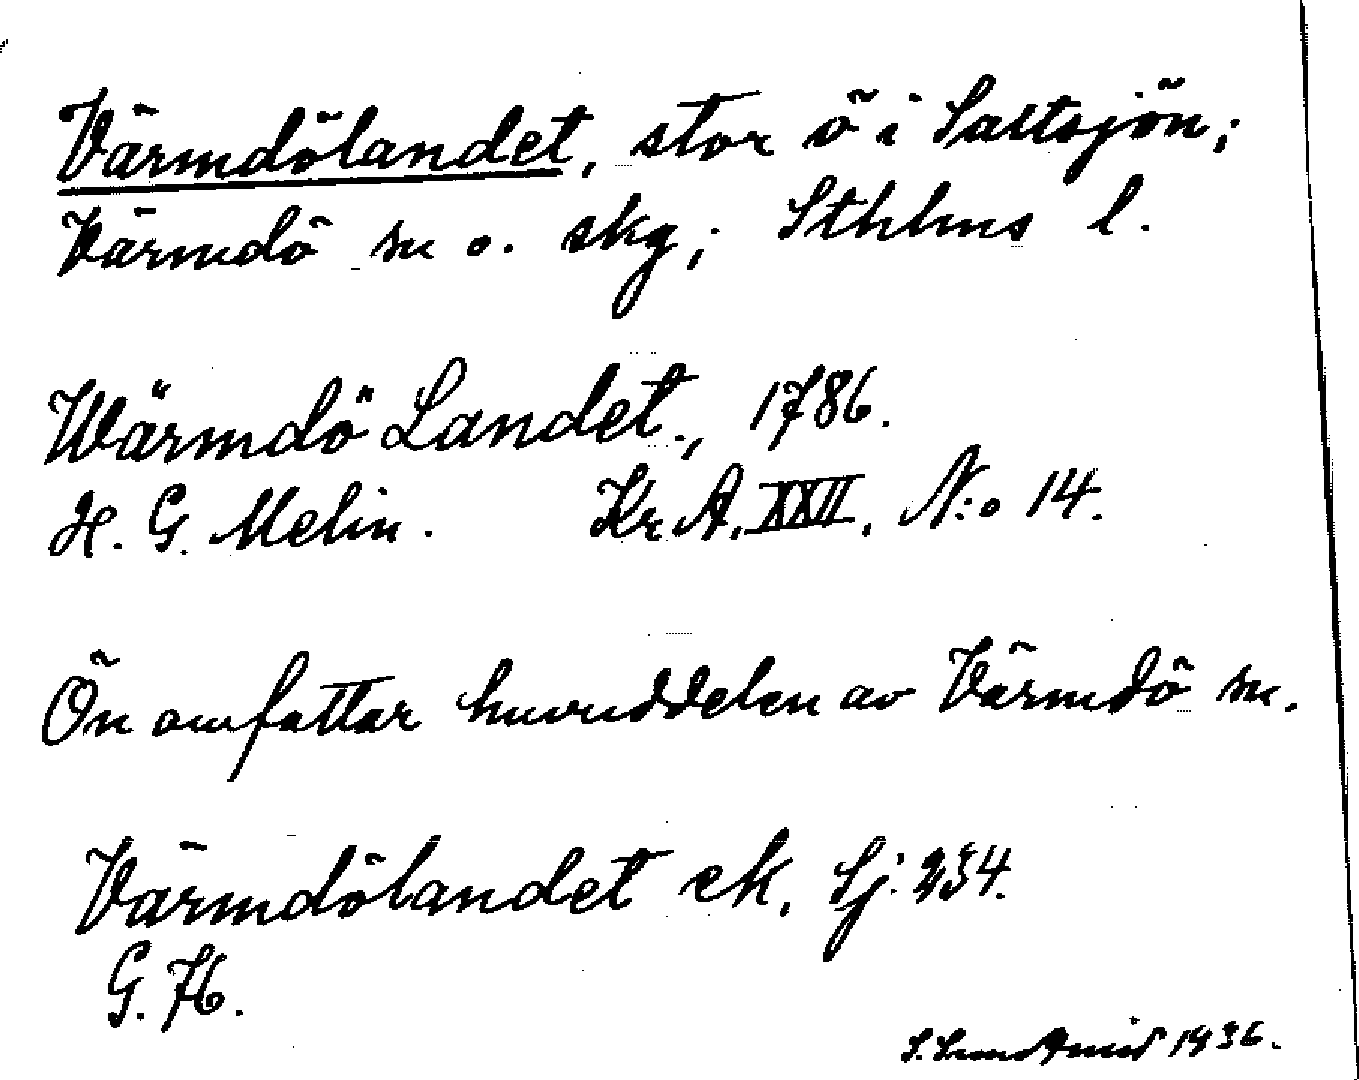 Värmdölandet, stor ö i Saltsjön;
Värmdö sn o. skg; Sthlms l.
Wärmdö Landet., 1786.
H. G. Melin. Kr. A. XXII. N:o 14.
Ön omfattar huvuddelen av Värmdö sn.
Värmdölandet ek. Sj: 234.
G. 76.
1936.